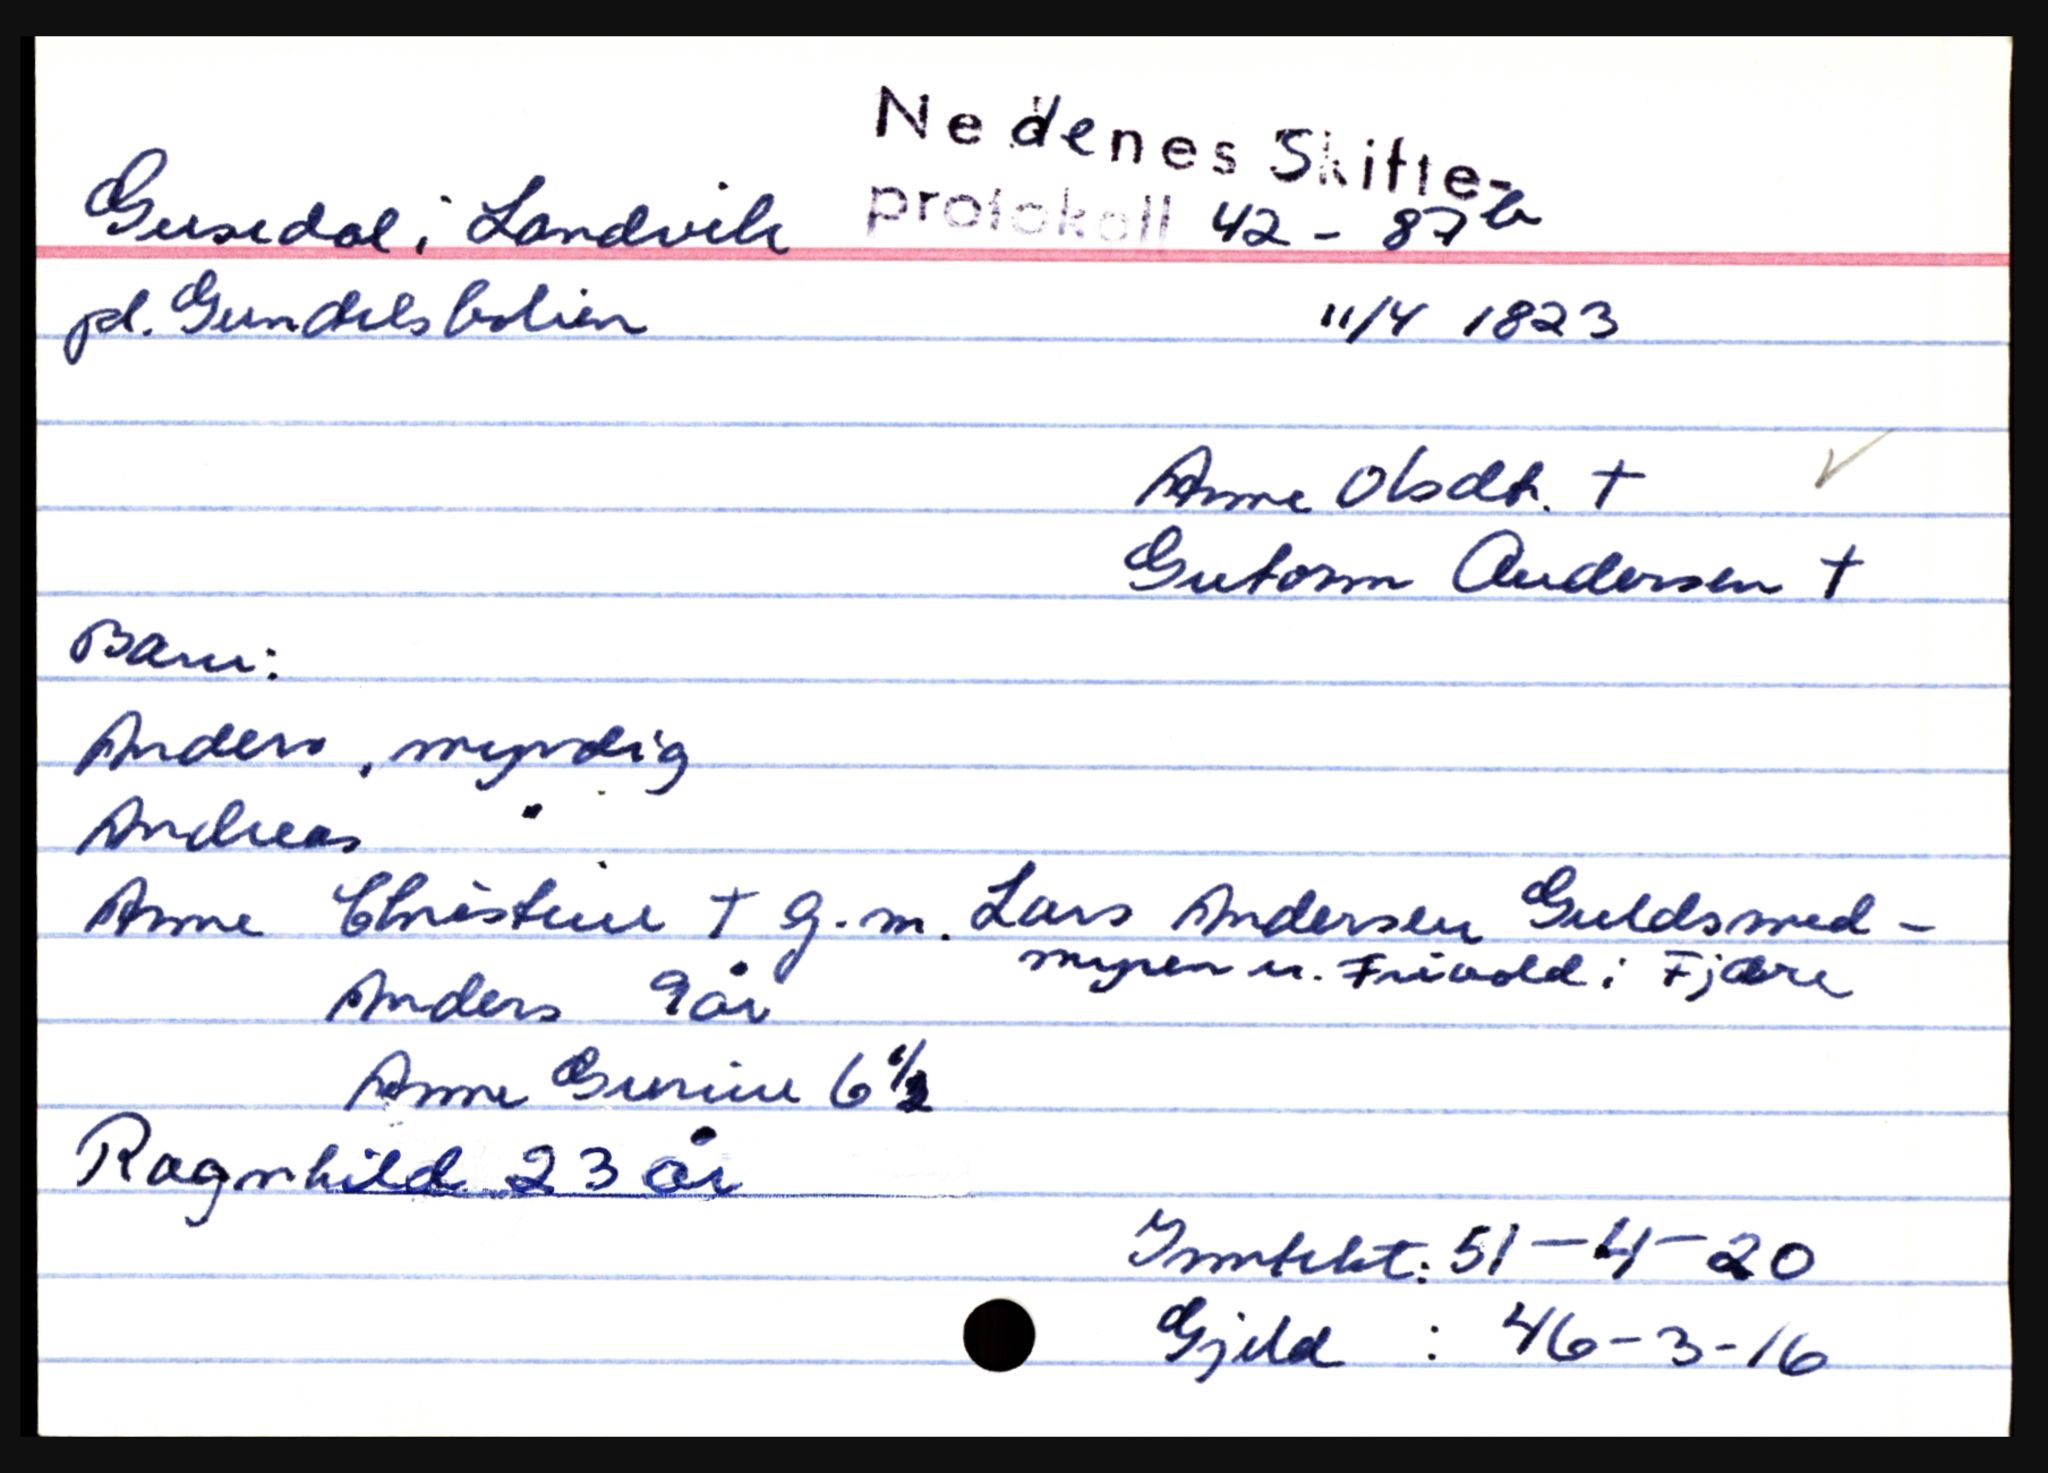 Nedenes Skifte-
protokoll 42 - 87b
Gusedal i Landvik
pl. Gundelsbolien
11/4 1823
Anne Olsdtr. †
Gutorm Andersen †
Barn:
Anders, myndig
Andreas "
Anne Christine † g.m. Lars Andersen Guldsmed-
myren u. Frivold i Fjære
Anders 9 år
Anne Gurine 6 1/2
Ragnhild 23 år
Inntekt: 51-4-20
Gjeld : 46-3-16